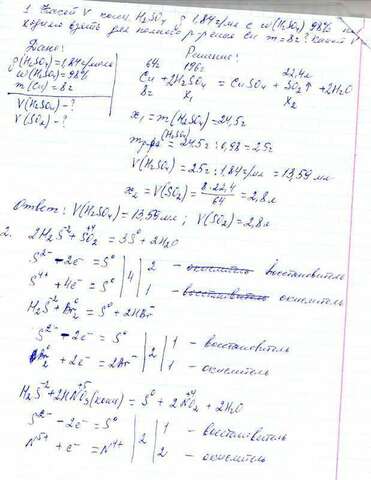 1. Какой V конц. H₂SO₄ ρ 1,84 г/мл с ω(H₂SO₄) 98%
взять для полного Cu m = 8г? Какой V
Дано: Решение:
ρ(H₂SO₄)=1,84г/мл 64г 196г 22,4л
ω(H₂SO₄)=98% Cu + 2H₂SO₄ = CuSO₄ + SO₂↑ + 2H₂O
m(Cu)=8г 8г x₁ x₂
V(H₂SO₄)-? x₁ = m(H₂SO₄)=24,5г
V(SO₂)-? m р-ра (H₂SO₄) = 24,5г : 0,98 = 25г
V(H₂SO₄) = 25г : 1,84г/мл = 13,59 мл
x₂ = V(SO₂) = 8·22,4 / 64 = 2,8л
Ответ: V(H₂SO₄) = 13,59мл ; V(SO₂) = 2,8л
2. 2H₂S⁻² + S⁺⁴O₂ = 3S⁰ + 2H₂O
S²⁻ - 2e⁻ = S⁰ | 4 | 2 - окислитель восстановитель
S⁴⁺ + 4e⁻ = S⁰ | | 1 - восстановитель окислитель
H₂S⁻² + Br₂⁰ = S⁰ + 2HBr⁻
S²⁻ - 2e⁻ = S⁰ | 2 | 1 - восстановитель
Br₂⁰ + 2e⁻ = 2Br⁻ | | 1 - окислитель
H₂S⁻² + 2HN⁺⁵O₃(конц) = S⁰ + 2N⁺⁴O₂ + 2H₂O
S²⁻ - 2e⁻ = S⁰ | 2 | 1 - восстановитель
N⁵⁺ + e⁻ = N⁴⁺ | | 2 - окислитель